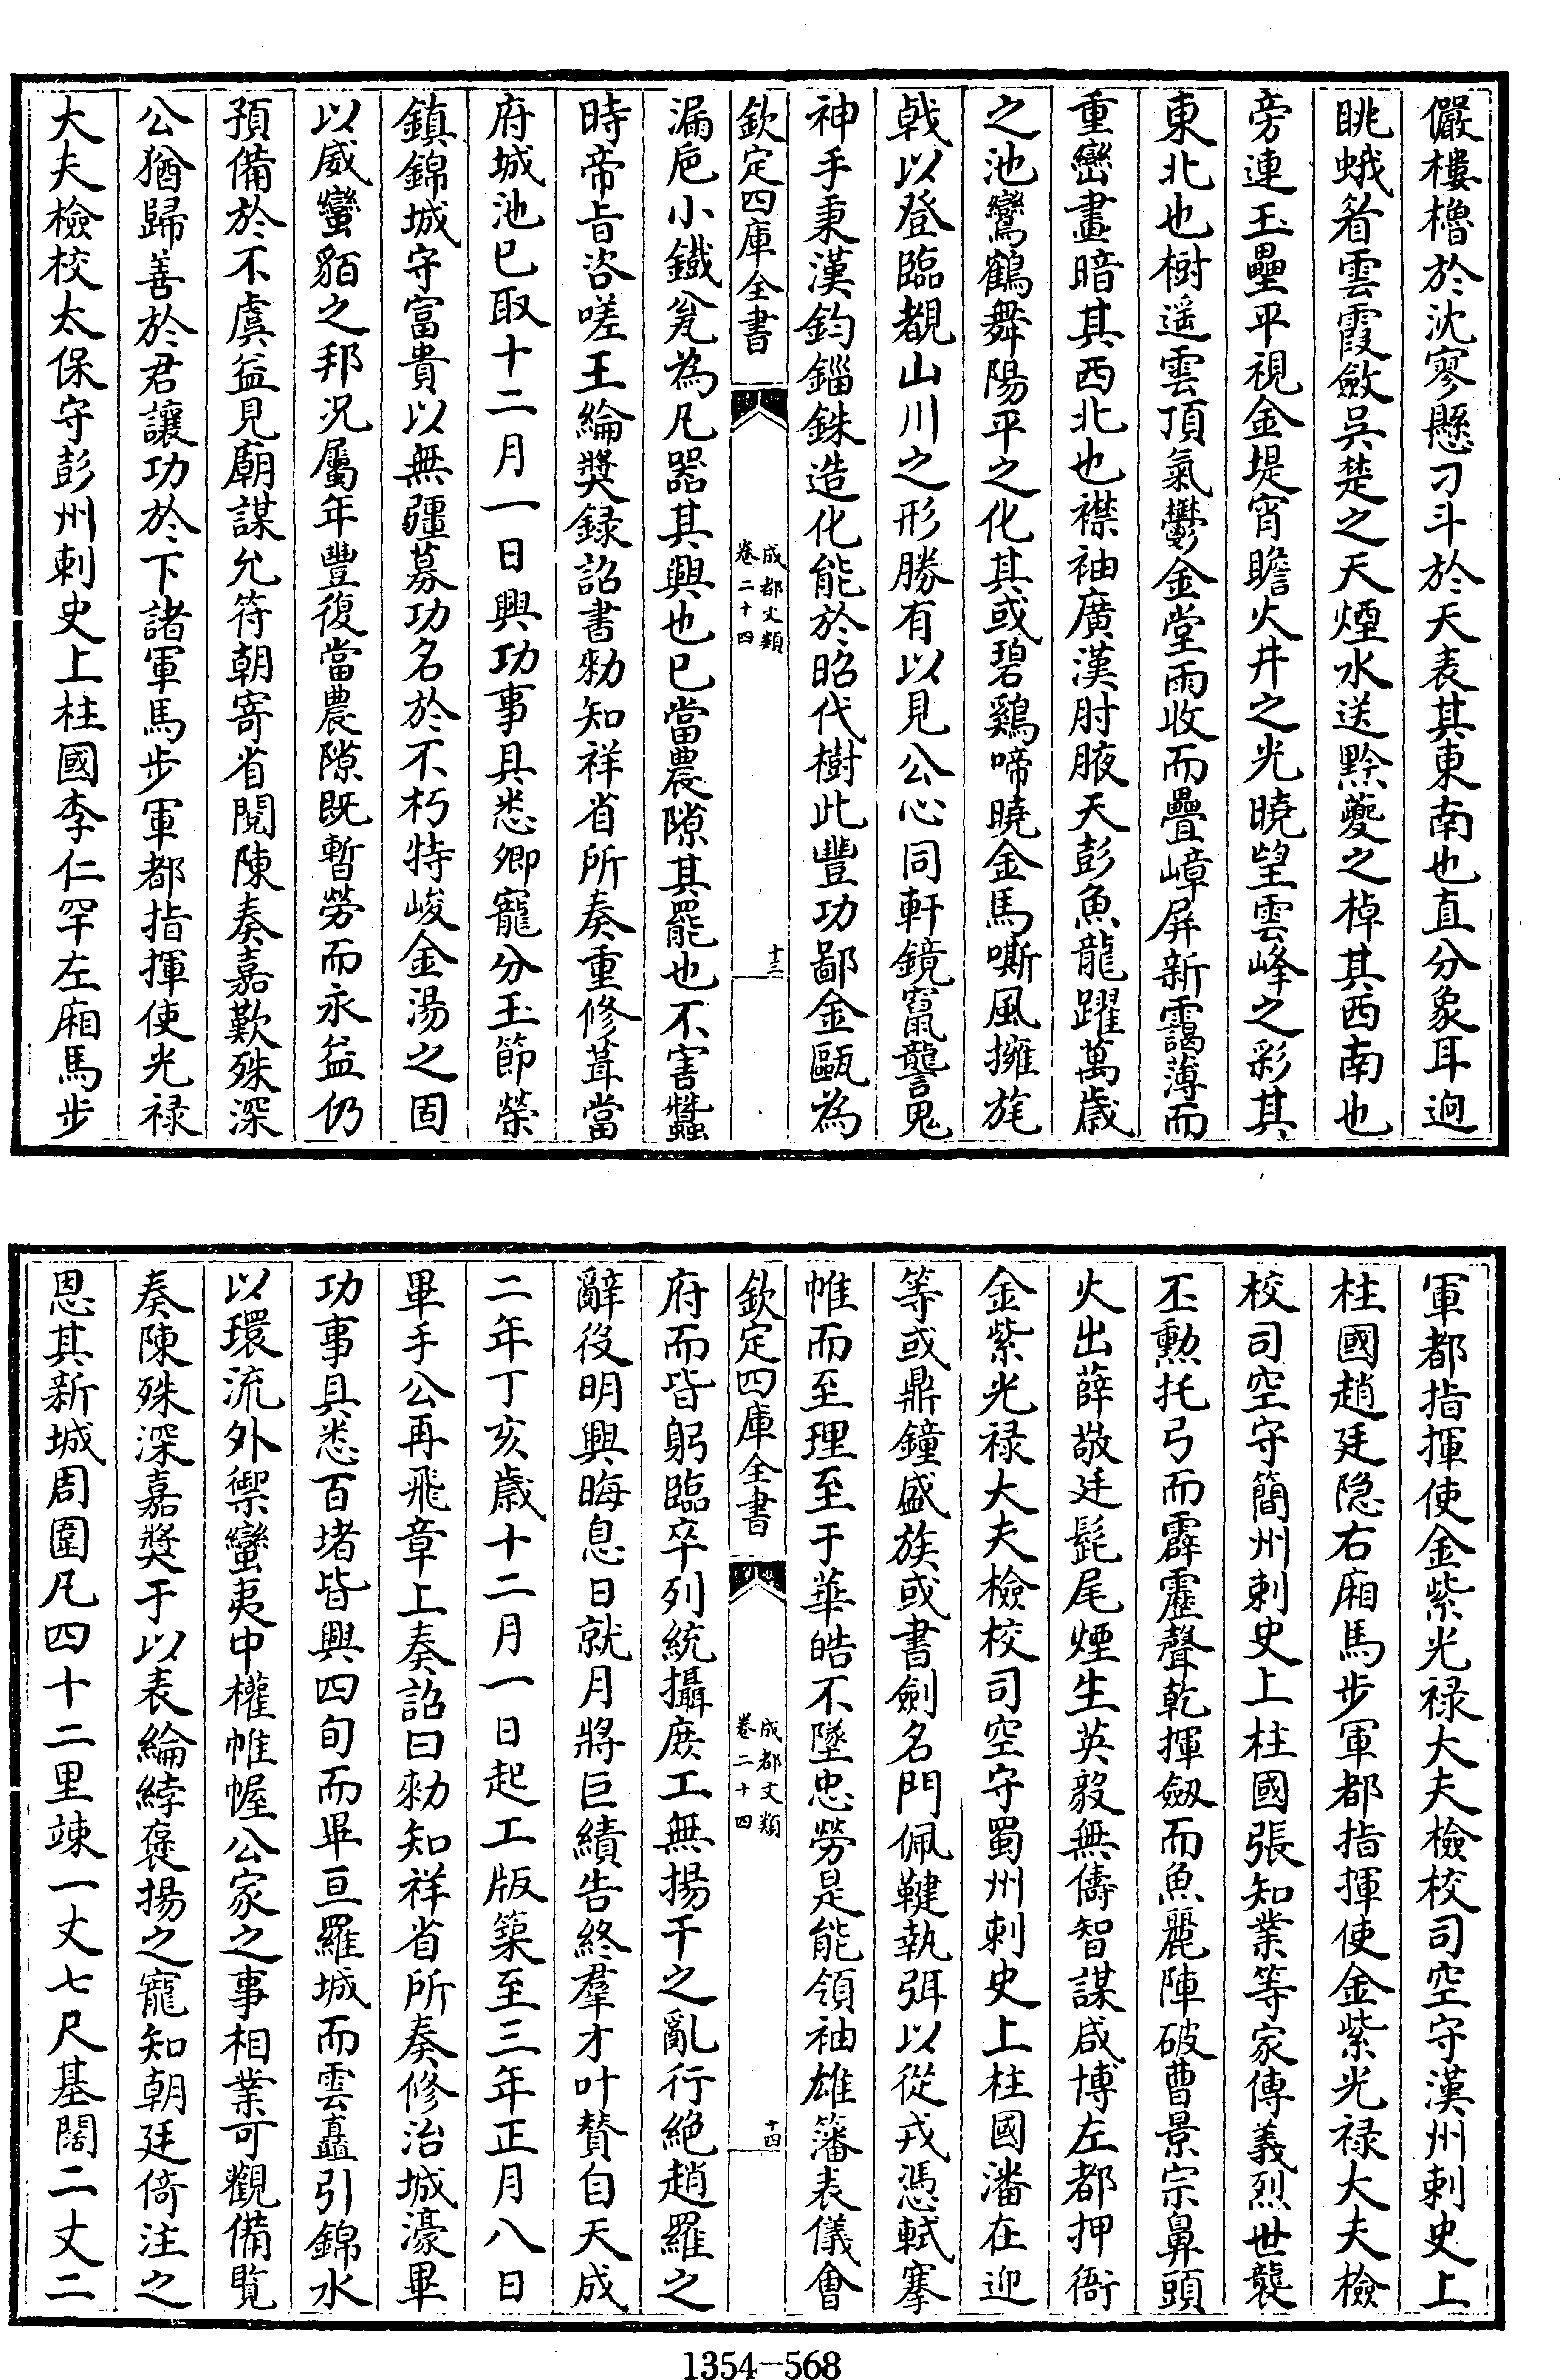 儼樓櫓於沈寥懸刁斗於天表其東南也直分象耳迥
眺蛾眉雲霞斂吳楚之天煙水送黔夔之棹其西南也
旁連玉壘平視金堤宵瞻火井之光曉望雲峰之彩其
東北也樹遥雲頂氣鬱金堂雨收而疊嶂屏新靄薄而
重巒畫暗其西北也襟袖廣漢肘腋天彭魚龍躍萬歲
之池鸞鶴舞陽平之化其或碧鷄啼曉金馬嘶風擁旄
戟以登臨覩山川之形勝有以見公心同軒鏡竄龍言鬼
神手秉漢鈞錙銖造化能於昭代樹此豐功鄙金甌為
欽定四庫全書
成都文類
卷二十四
十三
漏巵小鐵瓮為凡器其興也已當農隙其罷也不害蠶
時帝旨咨嗟王綸奬録詔書勑知祥省所奏重修葺當
府城池已取十二月一日興功事具悉卿寵分玉節榮
鎮錦城守富貴以無彊募功名於不朽特峻金湯之固
以威蠻貊之邦况屬年豐復當農隙既暫勞而永益仍
預備於不虞益見廟謀允符朝寄省閱陳奏嘉歎殊深
公猶歸善於君讓功於下諸軍馬步軍都指揮使光禄
大夫檢校太保守彭州刺史上柱國李仁罕左廂馬步
軍都指揮使金紫光禄大夫檢校司空守漢州刺史上
柱國趙廷隐右廂馬步軍都指揮使金紫光禄大夫檢
校司空守簡州刺史上柱國張知業等家傳義烈世襲
丕勲托弓而霹靂聲乾揮劔而魚麗陣破曹景宗鼻頭
火出薛敬廷髭尾煙生英毅無儔智謀咸博左都押衙
金紫光禄大夫檢校司空守蜀州刺史上柱國潘在迎
等或鼎鐘盛族或書劍名門佩鞬執弭以從戎憑軾搴
帷而至理至于華皓不墜忠勞是能領袖雄藩表儀會
欽定四庫全書
成都文類
卷二十四
十四
府而皆躬臨卒列統攝庶工無揚干之亂行絶趙羅之
辭役明興晦息日就月將巨績告終羣才叶賛自天成
二年丁亥歲十二月一日起工版築至三年正月八日
畢手公再飛章上奏詔曰勑知祥省所奏修治城濠畢
功事具悉百堵皆興四旬而畢亘羅城而雲矗引錦水
以環流外禦蠻夷中權帷幄公家之事相業可觀備覧
奏陳殊深嘉奬于以表綸綍褒揚之寵知朝廷倚注之
恩其新城周圍凡四十二里竦一丈七尺基闊二丈二
1354—568